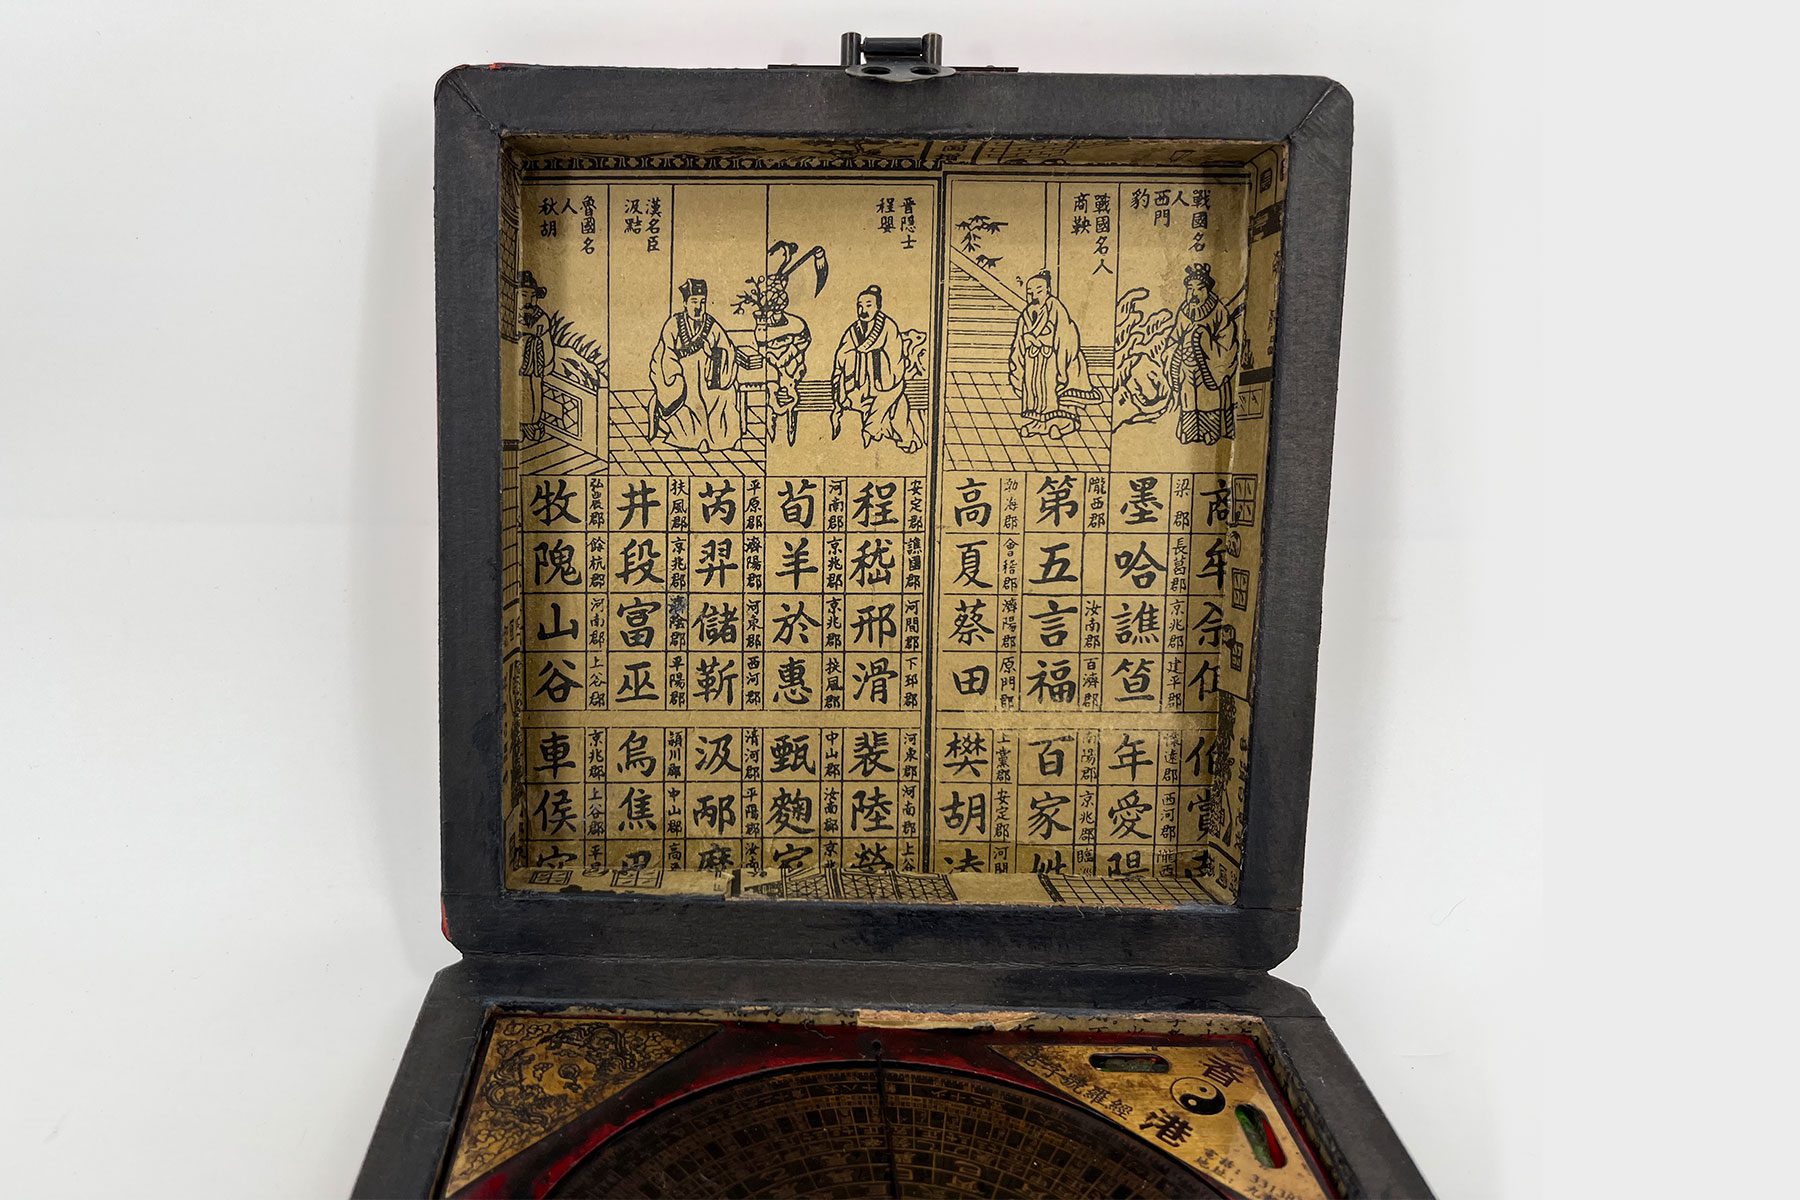 戰國名
人
西門
豹
戰國名人
商鞅
晉隱士
程嬰
漢名臣
汲黯
魯國名
人
秋胡
商牟佘
梁郡 長葛郡 京兆郡 建平郡
墨哈譙笪
隴西郡 汝南郡 百濟郡
第五言福
渤海郡 會稽郡 濟陽郡 原門郡
高夏蔡田
安定郡 譙國郡 河間郡 下邳郡
程嵇邢滑
河南郡 京兆郡 京兆郡 扶風郡
荀羊於惠
平原郡 濟陽郡 河東郡 西河郡
芮羿儲靳
扶風郡 京兆郡 濟陰郡 平陽郡
井段富巫
弘農郡 餘杭郡 河南郡 上谷郡
牧隗山谷
賞
懷遠郡 西河郡 隴西
年愛陽
南陽郡 京兆郡
百家姓
上黨郡 安定郡 河間
樊胡凌
河東郡 河南郡 上谷
裴陸榮
中山郡 汝南郡 京兆
甄麴家
清河郡 平陽郡 汝南
汲邴糜
潁川郡 中山郡 高平
烏焦巴
京兆郡 上谷郡 平昌
車侯宓
香港
字號羅經
電話: